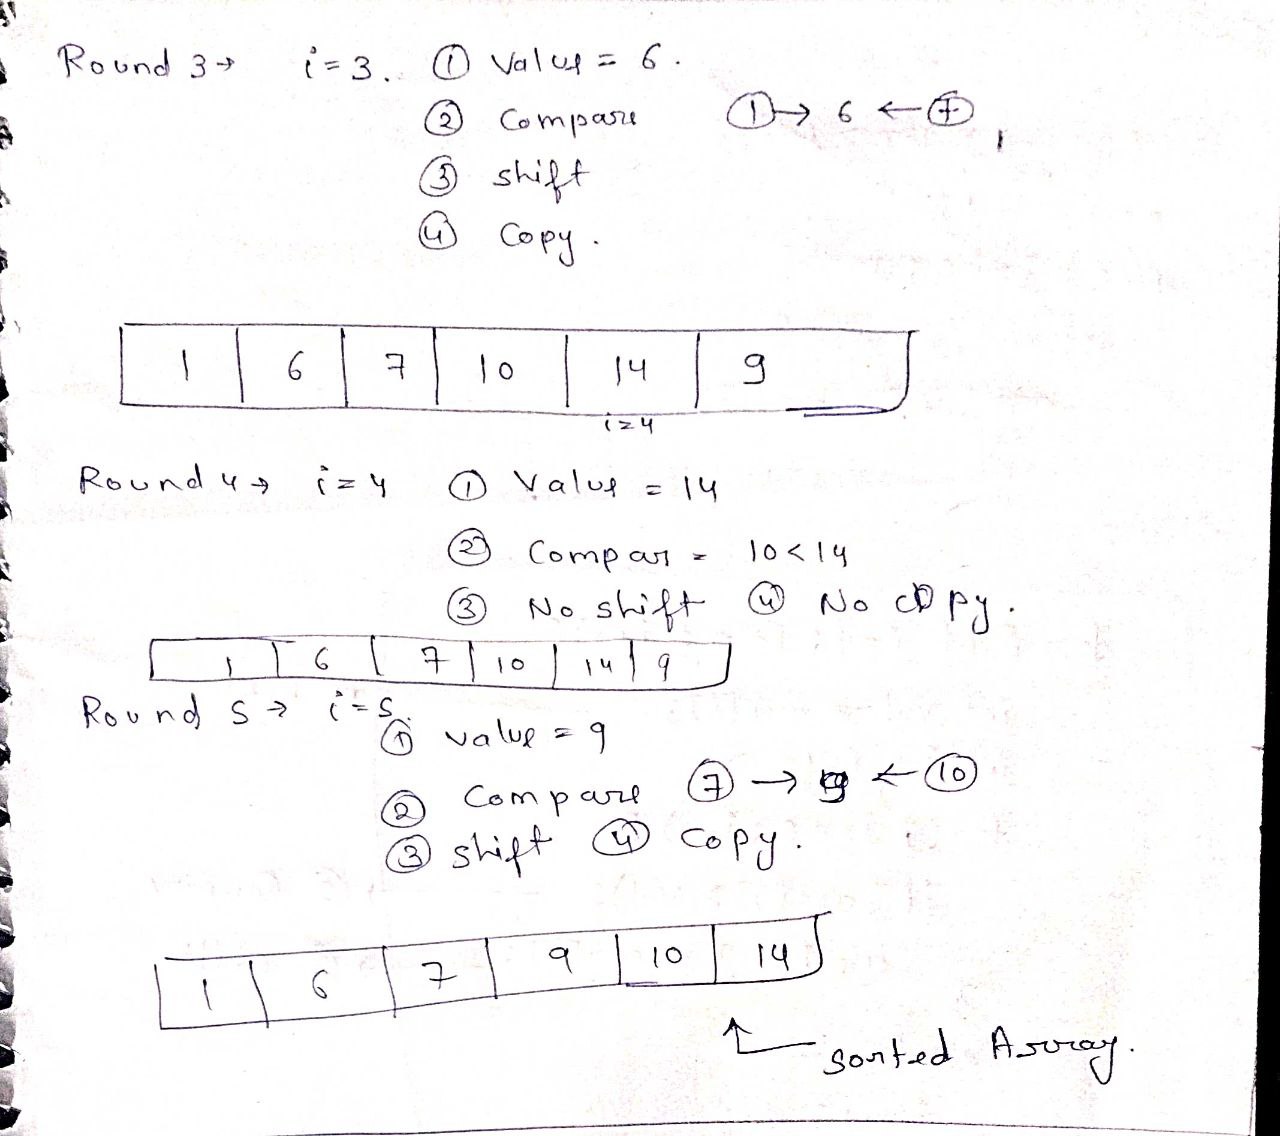 Round 3 → i = 3. ① Value = 6.
② Compare ① → 6 ← ⑦
③ shift
④ Copy.
1 | 6 | 7 | 10 | 14 | 9
i = 4
Round 4 → i = 4 ① Value = 14
② Compar = 10 < 14
③ No shift ④ No copy.
1 | 6 | 7 | 10 | 14 | 9
Round 5 → i = 5.
① value = 9
② Compare ⑦ → 9 ← ⑩
③ shift ④ Copy.
1 | 6 | 7 | 9 | 10 | 14
sorted Array.